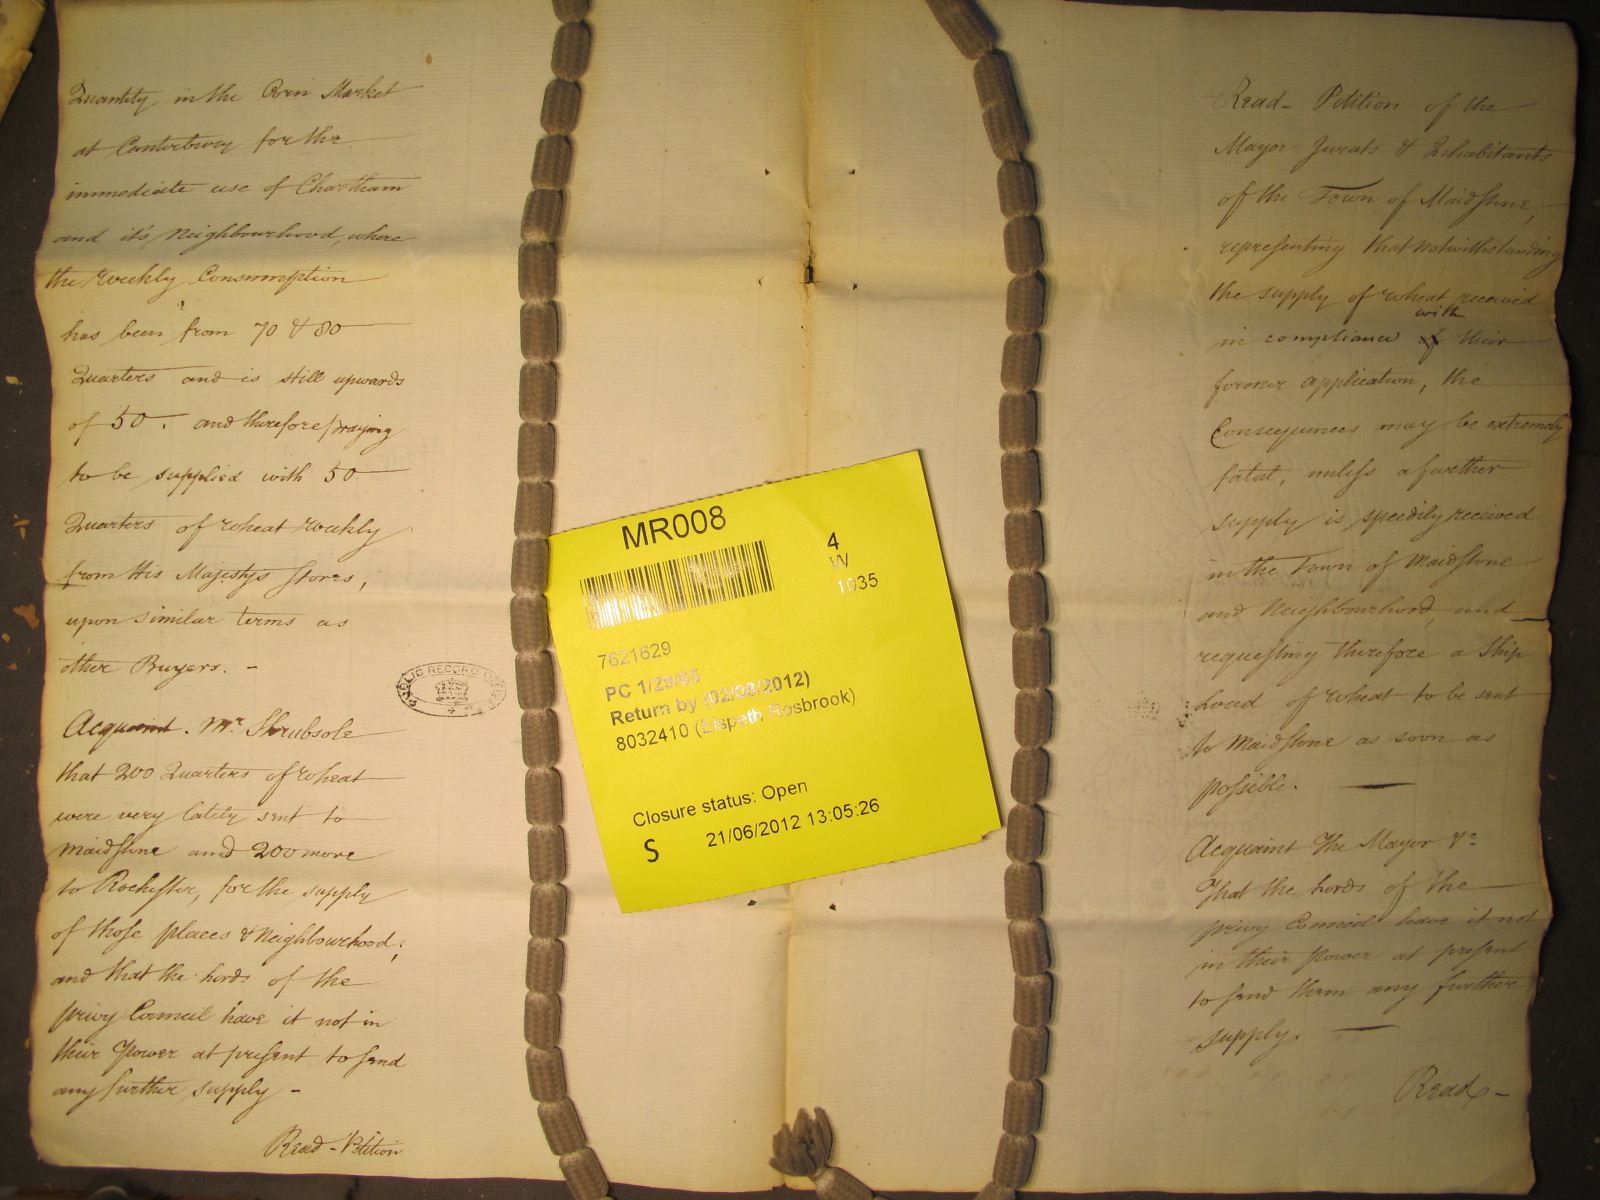 Quantity in the Corn Market
at Canterbury for the
immediate use of Chartham
and it's Neighbourhood, where
the weekly Consumption
has been from 70 & 80
Quarters and is still upwards
of 50. and therefore praying
to be supplied with 50
Quarters of wheat weekly
from His Majestys Stores,
upon similar terms as
other Buyers. -
Acquaint. Mr. Shrubsole
that 200 Quarters of wheat
were very lately sent to
Maidstone and 200 more
to Rochester, for the supply
of those places & Neighbourhood;
and that the Lords of the
privy Council have it not in
their Power at present to send
any further supply -
Read - Petition
PUBLIC RECORD OFFICE
MR008
4
W
1035
7621629
PC 1/29/65
Return by (02/08/2012)
8032410 (Elspeth Rosbrook)
Closure status: Open
S 21/06/2012 13:05:26
Read - Petition of the
Mayor Jurats & Inhabitants
of the Town of Maidstone,
representing that notwithstanding
the supply of wheat received
with
in compliance of their
former application, the
Consequences may be extremely
fatal, unless a further
supply is speedily received
in the Town of Maidstone
and Neighbourhood, and
requesting therefore a Ship
Load of wheat to be sent
to Maidstone as soon as
possible.
Acquaint The Mayor &c
That the Lords of the
privy Council have it not
in their Power at present
to send them any further
supply.
Read -